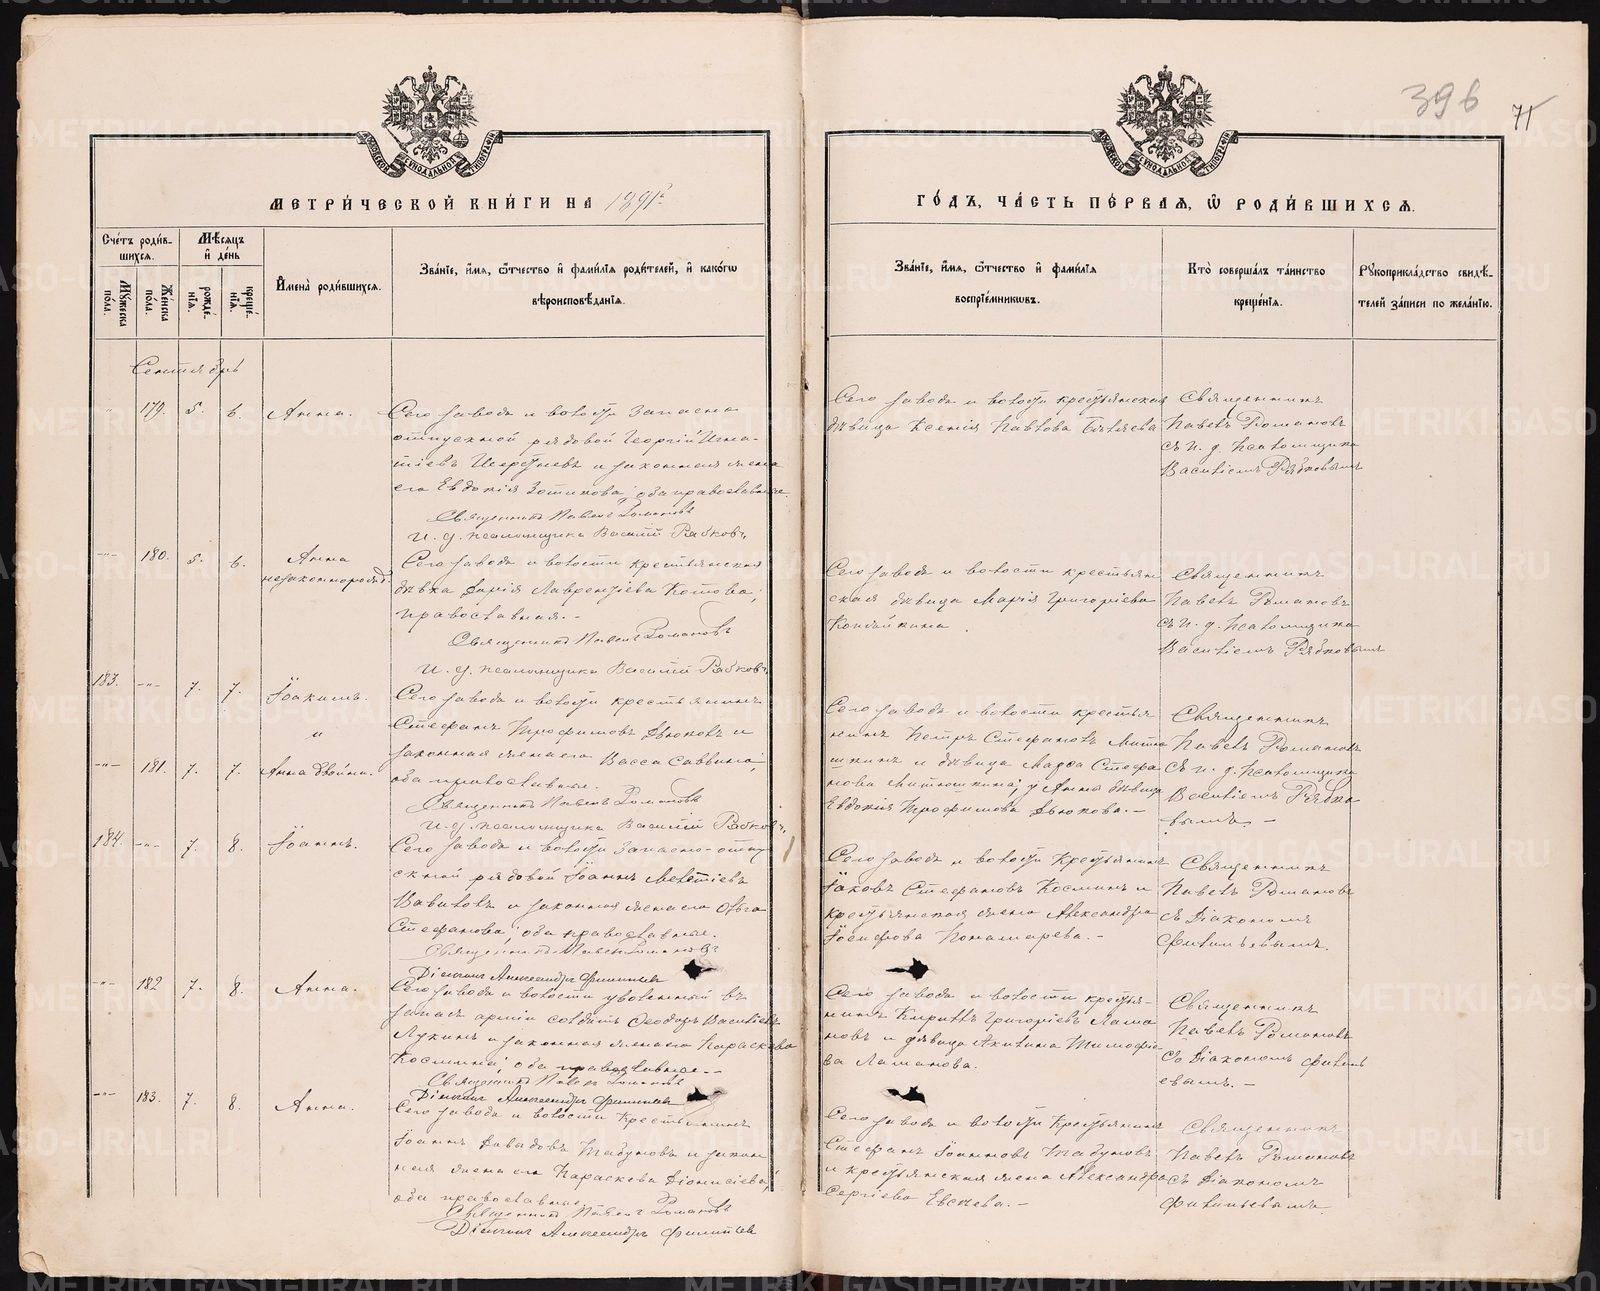 396
71
МЕТРИ́ЧЕСКОЙ КНИ́ГИ НА 1891 г.
ГО́ДЪ, ЧА́СТЬ ПЕ́РВАѦ, Ѡ РОДИ́ВШИХСѦ.
Сче́тъ роди́в-
шихсѧ.
Мꙋжеска по́ла.
Же́нска по́ла.
Мѣ́сѧцъ
и҆ де́нь
рожде́-
нїѧ.
креще́-
нїѧ.
И҆мена̀ роди́вшихсѧ.
Зва́нїе, и҆́мѧ, ѻ҆́тчество и҆ фамі́лїѧ роди́телей, и҆ како́гѡ
вѣроисповѣ́данїѧ.
Зва́нїе, и҆́мѧ, ѻ҆́тчество и҆ фамі́лїѧ
воспрїе́мникѡвъ.
Кто̀ соверша́лъ та́инство
креще́нїѧ.
Рꙋкоприкла́дство свидѣ́-
телей за́писи по жела́нїю.
Сентябрь
179. 5. 6. Анна.
Сего завода и волости запасно
отпускной рядовой Георгий Игна-
тіевъ и законная жена
его Евдокія Зотикова, оба православные.
Священникъ Павелъ Романовъ
И. д. псаломщика Василій Рябковъ.
Сего завода и волости крестьянская
дѣвица Ксенія Павлова Бѣляева
Священникъ
Павелъ Романовъ
съ и. д. псаломщика
Василіемъ Рябковымъ
-"- 180. 5. 6. Анна
незаконнорожд.
Сего завода и волости крестьянская
дѣвка Дарія Лаврентіева Котова,
православная.-
Священникъ Павелъ Романовъ
И. д. псаломщика Василій Рябковъ.
Сего завода и волости крестьян
ская дѣвица Марія Григоріева
Священникъ
Павелъ Романовъ
съ и. д. псаломщика
Василіемъ Рябковымъ
183. -"- 7. 7. Іоакимъ.
"
-"- 181. 7. 7. Анна двойни.
Сего завода и волости крестьянинъ
Стефанъ Трофимовъ Дьюковъ и
законная жена его Васса Саввина,
оба православные.
Священникъ Павелъ Романовъ
И. д. псаломщика Василій Рябковъ.
Сего завода и волости крестья
нинъ Петръ Стефановъ Митю
шкинъ и дѣвица Марѳа Стефа
нова Митюшкина; у Анны дѣвица
Евдокія Трофимова Дьюкова.-
Священникъ
Павелъ Романовъ
съ и. д. псаломщика
Василіемъ Рябко
вымъ. -
184. -"- 7. 8. Іоаннъ.
Сего завода и волости запасно-отпу
скный рядовой Іоаннъ Мелетіевъ
Вавиловъ и законная жена его Ольга
Стефанова, оба православные.
Священникъ Павелъ Романовъ
Діаконъ Александръ Филипьевъ
Сего завода и волости крестьянинъ
Іаковъ Стефановъ Косминъ и
крестьянская жена Александра
Іосифова Пономарева.-
Священникъ
Павелъ Романовъ
съ Діакономъ
Филипьевымъ.
-"- 182 7. 8. Анна.
Сего завода и волости уволенный въ
запасъ арміи солдатъ Ѳеодоръ Василіевъ
Лукинъ и законная жена его Параскева
Космина, оба православные.-
Священникъ Павелъ Романовъ
Діаконъ Александръ Филипьевъ
Сего завода и волости крестья-
нинъ Кириллъ Григоріевъ Лама
новъ и дѣвица Акилина Тимофіе
ва Ламанова.
Священникъ
Павелъ Романовъ
Со Діакономъ Филипь
евымъ. -
-"- 183. 7. 8. Анна.
Сего завода и волости крестьянинъ
Іоаннъ Давидовъ Табуновъ и закон
ная жена его Параскева Діонисіева,
оба православные.
Священникъ Павелъ Романовъ
Діаконъ Александръ Филипьевъ
Сего завода и волости крестьянинъ
Стефанъ Іоанновъ Табуновъ
и крестьянская жена Александра
Сергіева Евсѣева.-
Священникъ
Павелъ Романовъ
съ Діакономъ
Филипьевымъ.
METRIKI.GASO-URAL.RU